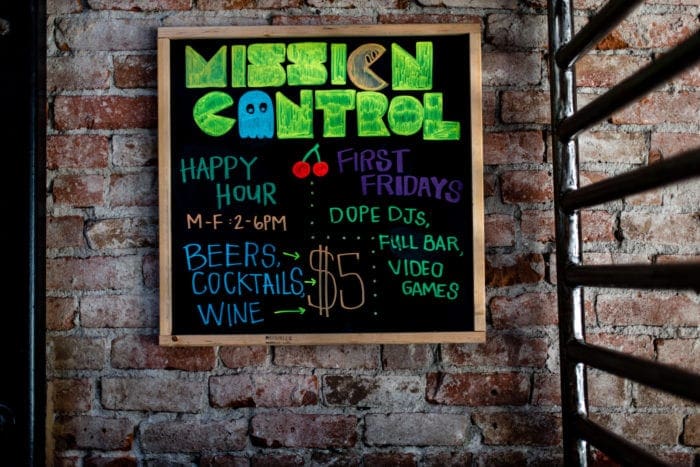 MISSION
CONTROL
HAPPY
HOUR
M-F: 2-6PM
BEERS,
COCKTAILS,
WINE
$5
FIRST
FRIDAYS
DOPE DJS,
FULL BAR,
VIDEO
GAMES